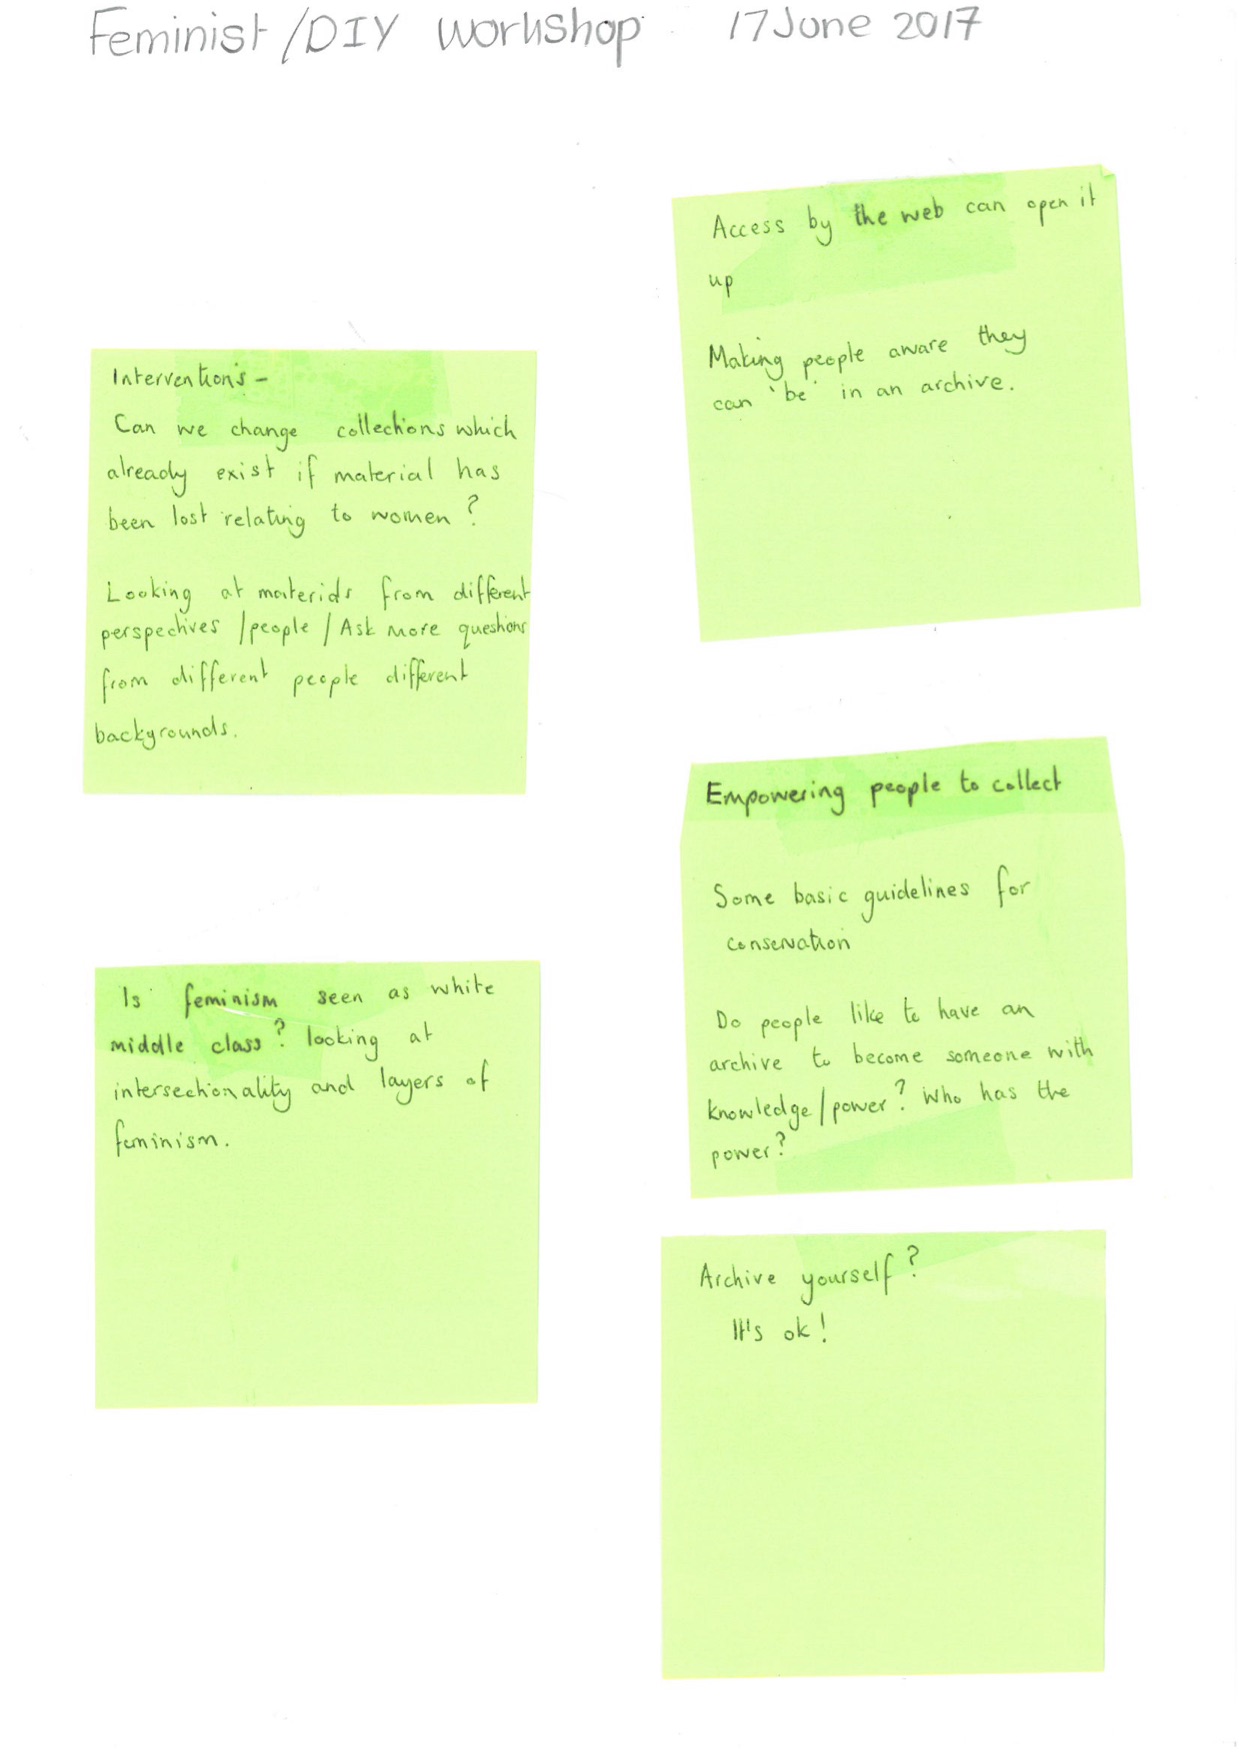 Feminist/DIY Workshop 17 June 2017
Interventions -
Can we change collections which
already exist if material has
been lost relating to women?
Looking at materials from different
perspectives /people / Ask more questions
from different people different
backgrounds.
Is feminism seen as white
middle class? looking at
intersectionality and layers of
feminism.
Access by the web can open it
up
Making people aware they
can 'be' in an archive.
Empowering people to collect
Some basic guidelines for
conservation
Do people like to have an
archive to become someone with
knowledge/power? Who has the
power?
Archive yourself?
It's ok!